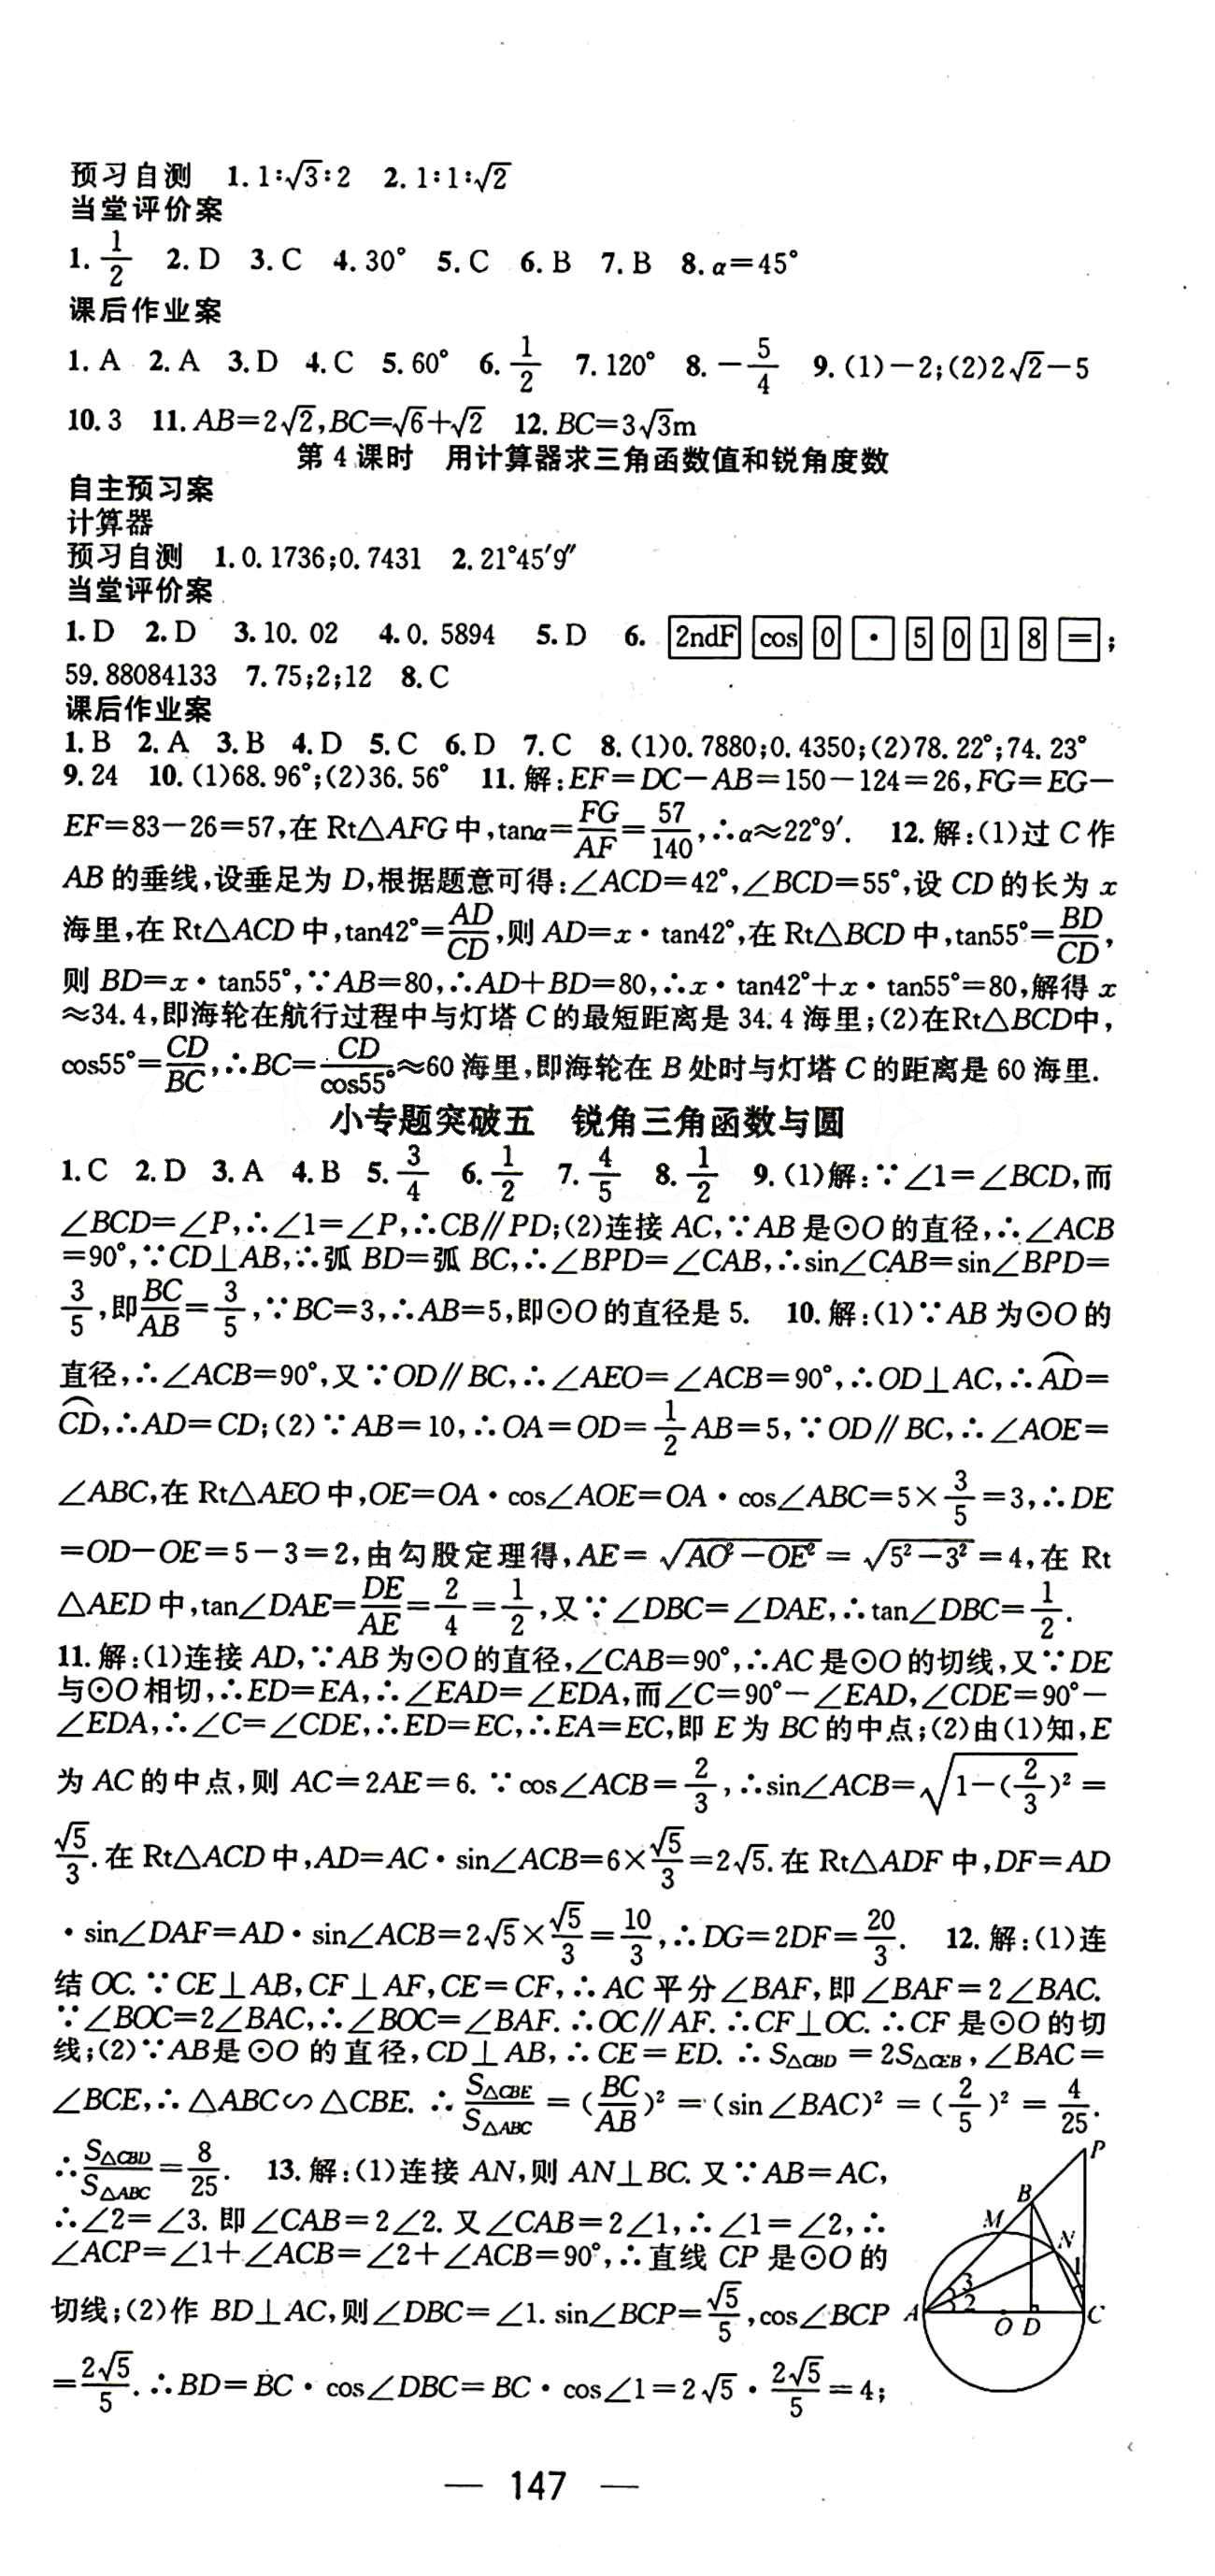 预习自测 1. 1∶√3∶2 2. 1∶1∶√2
当堂评价案
1. 1/2 2. D 3. C 4. 30° 5. C 6. B 7. B 8. α=45°
课后作业案
1. A 2. A 3. D 4. C 5. 60° 6. 1/2 7. 120° 8. -5/4 9. (1)-2;(2)2√2-5
10. 3 11. AB=2√2,BC=√6+√2 12. BC=3√3m
第4课时 用计算器求三角函数值和锐角度数
自主预习案
计算器
预习自测 1. 0.1736;0.7431 2. 21°45′9″
当堂评价案
1. D 2. D 3. 10.02 4. 0.5894 5. D 6. 2ndF cos 0 · 5 0 1 8 = ;
59.88084133 7. 75;2;12 8. C
课后作业案
1. B 2. A 3. B 4. D 5. C 6. D 7. C 8. (1)0.7880;0.4350;(2)78.22°;74.23°
9. 24 10. (1)68.96°;(2)36.56° 11. 解:EF=DC-AB=150-124=26,FG=EG-
EF=83-26=57,在Rt△AFG中,tanα=FG/AF=57/140,∴α≈22°9′. 12. 解:(1)过C作
AB的垂线,设垂足为D,根据题意可得:∠ACD=42°,∠BCD=55°,设CD的长为x
海里,在Rt△ACD中,tan42°=AD/CD,则AD=x·tan42°,在Rt△BCD中,tan55°=BD/CD,
则BD=x·tan55°,∵AB=80,∴AD+BD=80,∴x·tan42°+x·tan55°=80,解得x
≈34.4,即海轮在航行过程中与灯塔C的最短距离是34.4海里;(2)在Rt△BCD中,
cos55°=CD/BC,∴BC=CD/cos55°≈60海里,即海轮在B处时与灯塔C的距离是60海里.
小专题突破五 锐角三角函数与圆
1. C 2. D 3. A 4. B 5. 3/4 6. 1/2 7. 4/5 8. 1/2 9. (1)解:∵∠1=∠BCD,而
∠BCD=∠P,∴∠1=∠P,∴CB∥PD;(2)连接AC,∵AB是⊙O的直径,∴∠ACB
=90°,∵CD⊥AB,∴弧BD=弧BC,∴∠BPD=∠CAB,∴sin∠CAB=sin∠BPD=
3/5,即BC/AB=3/5,∵BC=3,∴AB=5,即⊙O的直径是5. 10. 解:(1)∵AB为⊙O的
直径,∴∠ACB=90°,又∵OD∥BC,∴∠AEO=∠ACB=90°,∴OD⊥AC,∴⌒AD=
⌒CD,∴AD=CD;(2)∵AB=10,∴OA=OD=1/2AB=5,∵OD∥BC,∴∠AOE=
∠ABC,在Rt△AEO中,OE=OA·cos∠AOE=OA·cos∠ABC=5×3/5=3,∴DE
=OD-OE=5-3=2,由勾股定理得,AE=√(AO²-OE²)=√(5²-3²)=4,在Rt
△AED中,tan∠DAE=DE/AE=2/4=1/2,又∵∠DBC=∠DAE,∴tan∠DBC=1/2.
11. 解:(1)连接AD,∵AB为⊙O的直径,∠CAB=90°,∴AC是⊙O的切线,又∵DE
与⊙O相切,∴ED=EA,∴∠EAD=∠EDA,而∠C=90°-∠EAD,∠CDE=90°-
∠EDA,∴∠C=∠CDE,∴ED=EC,∴EA=EC,即E为BC的中点;(2)由(1)知,E
为AC的中点,则AC=2AE=6.∵cos∠ACB=2/3,∴sin∠ACB=√(1-(2/3)²)=
√5/3.在Rt△ACD中,AD=AC·sin∠ACB=6×√5/3=2√5.在Rt△ADF中,DF=AD
·sin∠DAF=AD·sin∠ACB=2√5×√5/3=10/3,∴DG=2DF=20/3. 12. 解:(1)连
结OC.∵CE⊥AB,CF⊥AF,CE=CF,∴AC平分∠BAF,即∠BAF=2∠BAC.
∵∠BOC=2∠BAC,∴∠BOC=∠BAF.∴OC∥AF.∴CF⊥OC.∴CF是⊙O的切
线;(2)∵AB是⊙O的直径,CD⊥AB,∴CE=ED.∴S△CBD=2S△CEB,∠BAC=
∠BCE,∴△ABC∽△CBE.∴S△CBE/S△ABC=(BC/AB)²=(sin∠BAC)²=(2/5)²=4/25.
∴S△CBD/S△ABC=8/25. 13. 解:(1)连接AN,则AN⊥BC.又∵AB=AC,
∴∠2=∠3.即∠CAB=2∠2.又∠CAB=2∠1,∴∠1=∠2,∴
∠ACP=∠1+∠ACB=∠2+∠ACB=90°,∴直线CP是⊙O的
切线;(2)作BD⊥AC,则∠DBC=∠1.sin∠BCP=√5/5,cos∠BCP
=2√5/5.∴BD=BC·cos∠DBC=BC·cos∠1=2√5·2√5/5=4;
P
B
M
N
1
3
2
A
O D
C
— 147 —